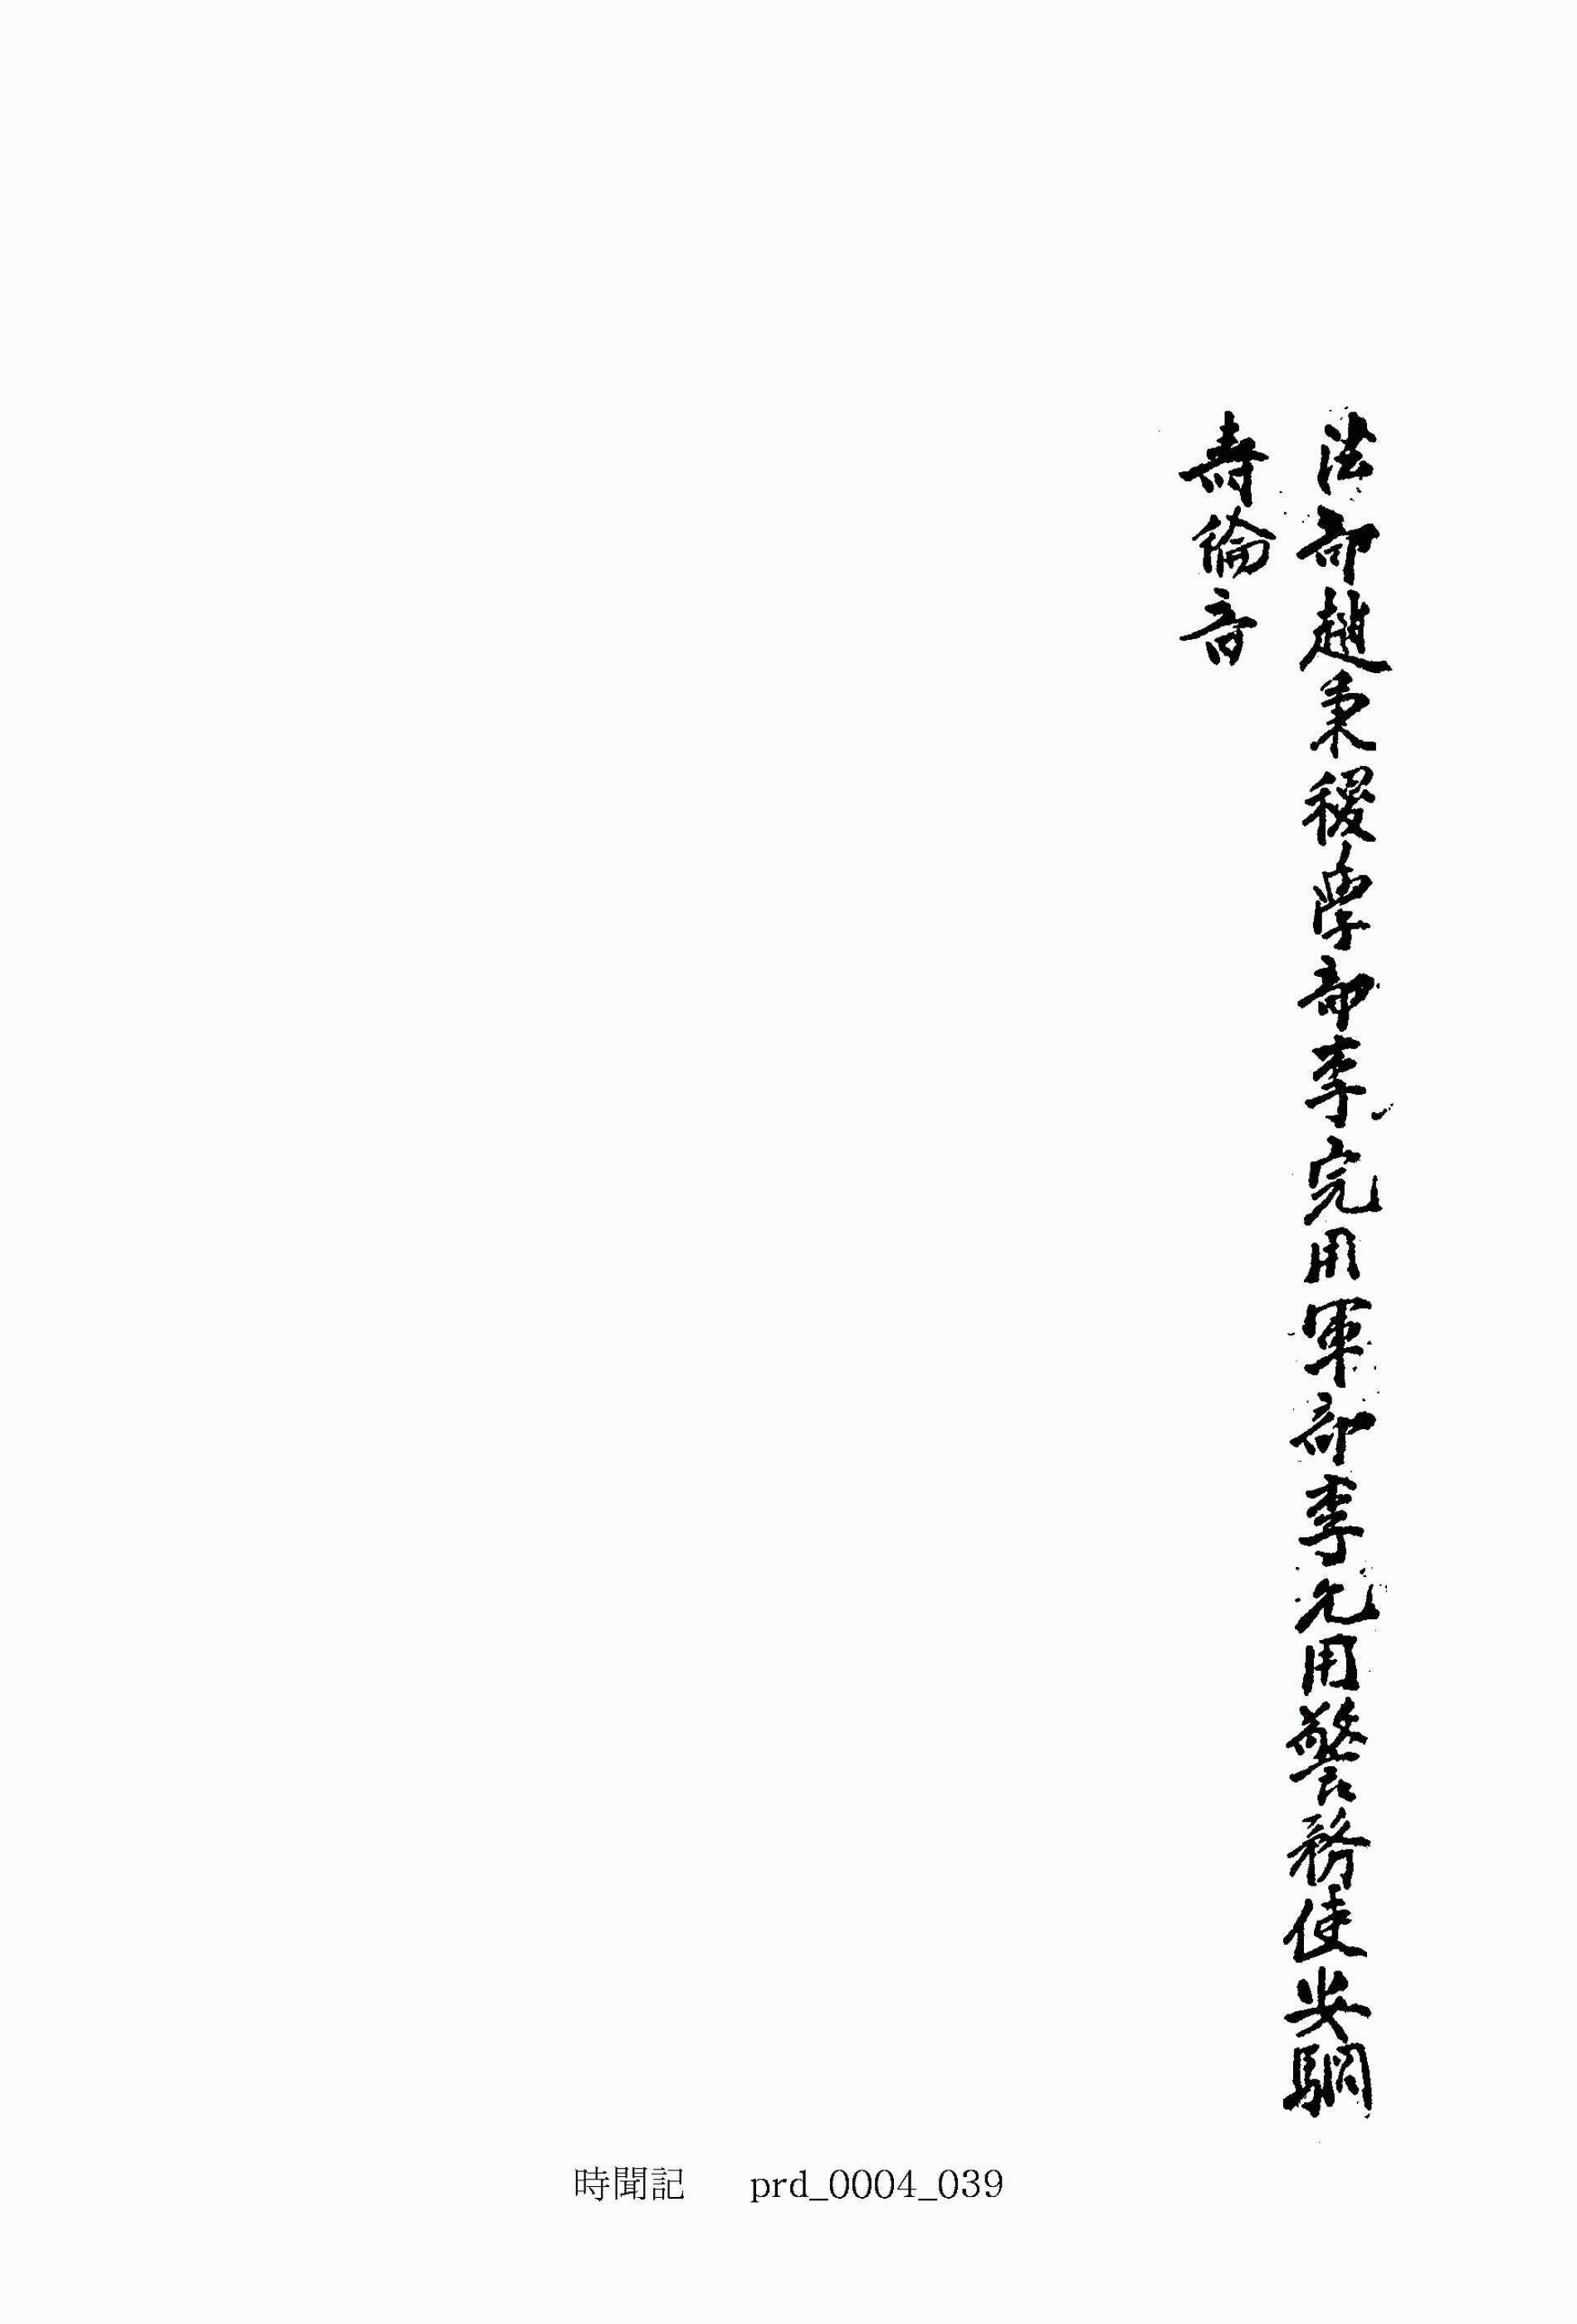 法部趙秉稷學部李完用軍部李允用警務使安駉
壽綸音
時聞記 prd_0004_039